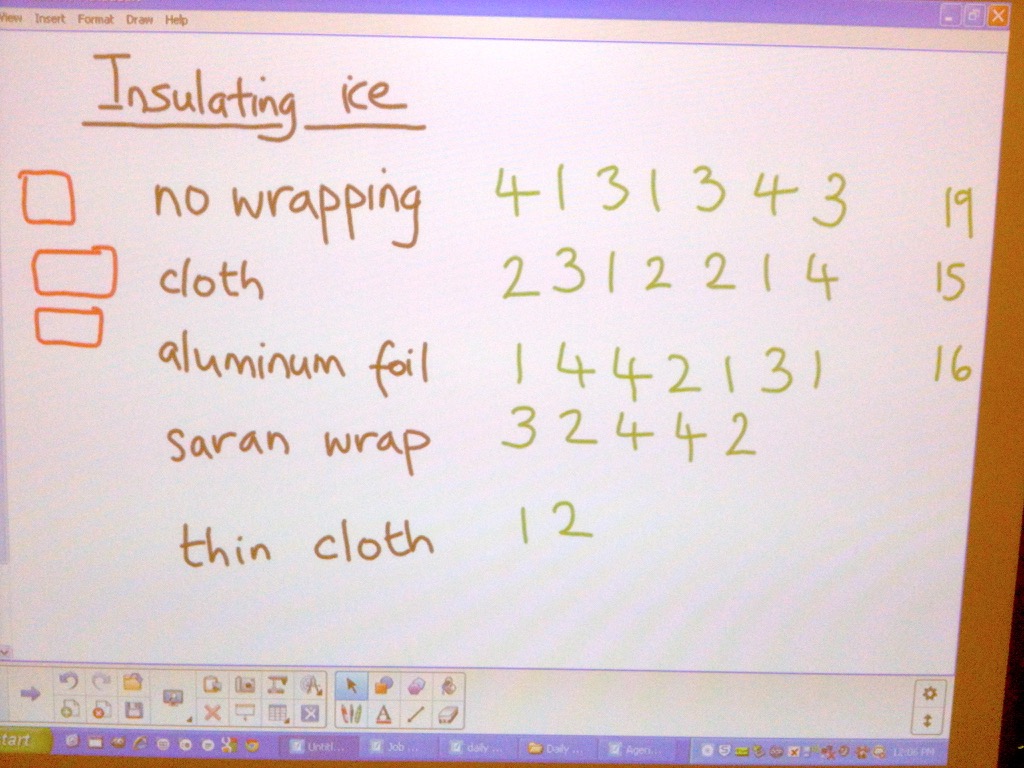 View Insert Format Draw Help
Insulating ice
no wrapping 4 1 3 1 3 4 3 19
cloth 2 3 1 2 2 1 4 15
aluminum foil 1 4 4 2 1 3 1 16
saran wrap 3 2 4 4 2
thin cloth 1 2
start Untitl... Job ... daily ... Daily ... Agen... 12:06 PM